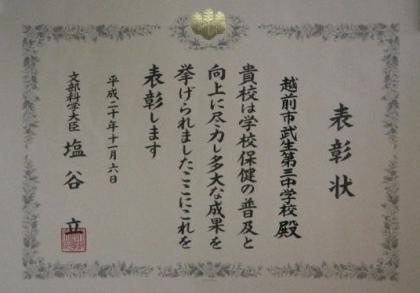 表彰状
越前市武生第三中学校 殿
貴校は学校保健の普及と
向上に尽力し多大な成果を
挙げられましたここにこれを
表彰します
平成二十年十一月六日
文部科学大臣 塩谷 立